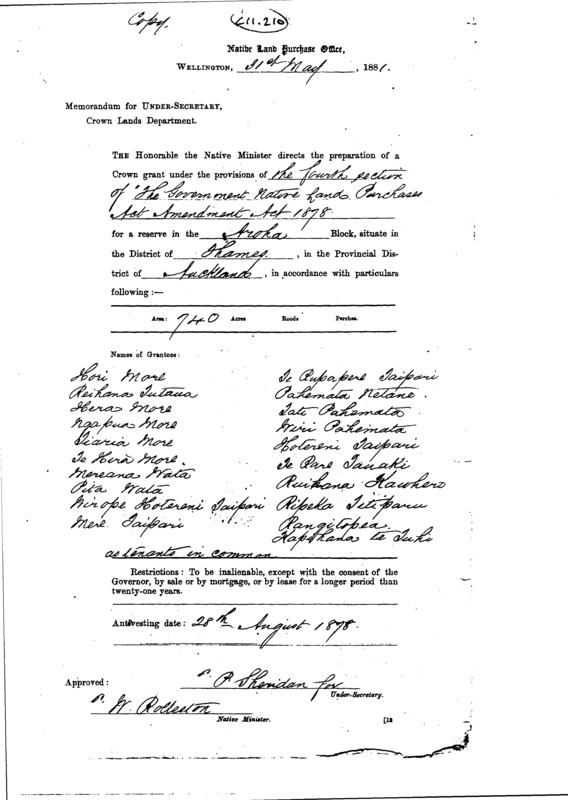 Copy.
L11.210
Native Land Purchase Office,
WELLINGTON, 31st May, 1881.
Memorandum for UNDER-SECRETARY,
Crown Lands Department.
THE Honorable the Native Minister directs the preparation of a
Crown grant under the provisions of the fourth section
of "The Government Native Lands Purchases
Act Amendment Act 1878
for a reserve in the Aroha Block, situate in
the District of Thames, in the Provincial Dis-
trict of Auckland, in accordance with particulars
following:—
Area: 740 Acres Roods Perches.
Names of Grantees:
Hori More
Reihana Tutaua
Hera More
Ngapua More
Tiaria More
Te Hira More.
Mereana Wata
Pita Wata
Wirope Hotereni Taipari
Mere Taipari
Te Rupapere Taipari
Pahemata Netane.
Tati Pahemata
Wiri Pahemata
Hotereni Taipari
Te Pare Tanaki
Ruihana Kawhero
Ripeka Titiparu
Rangitopea.
Hapihana te Tuki
as tenants in common
Restrictions: To be inalienable, except with the consent of the
Governor, by sale or by mortgage, or by lease for a longer period than
twenty-one years.
Antevesting date: 28th August 1878.
P Sheridan for
Under-Secretary.
Approved:
W. Rolleston
Native Minister.
[18